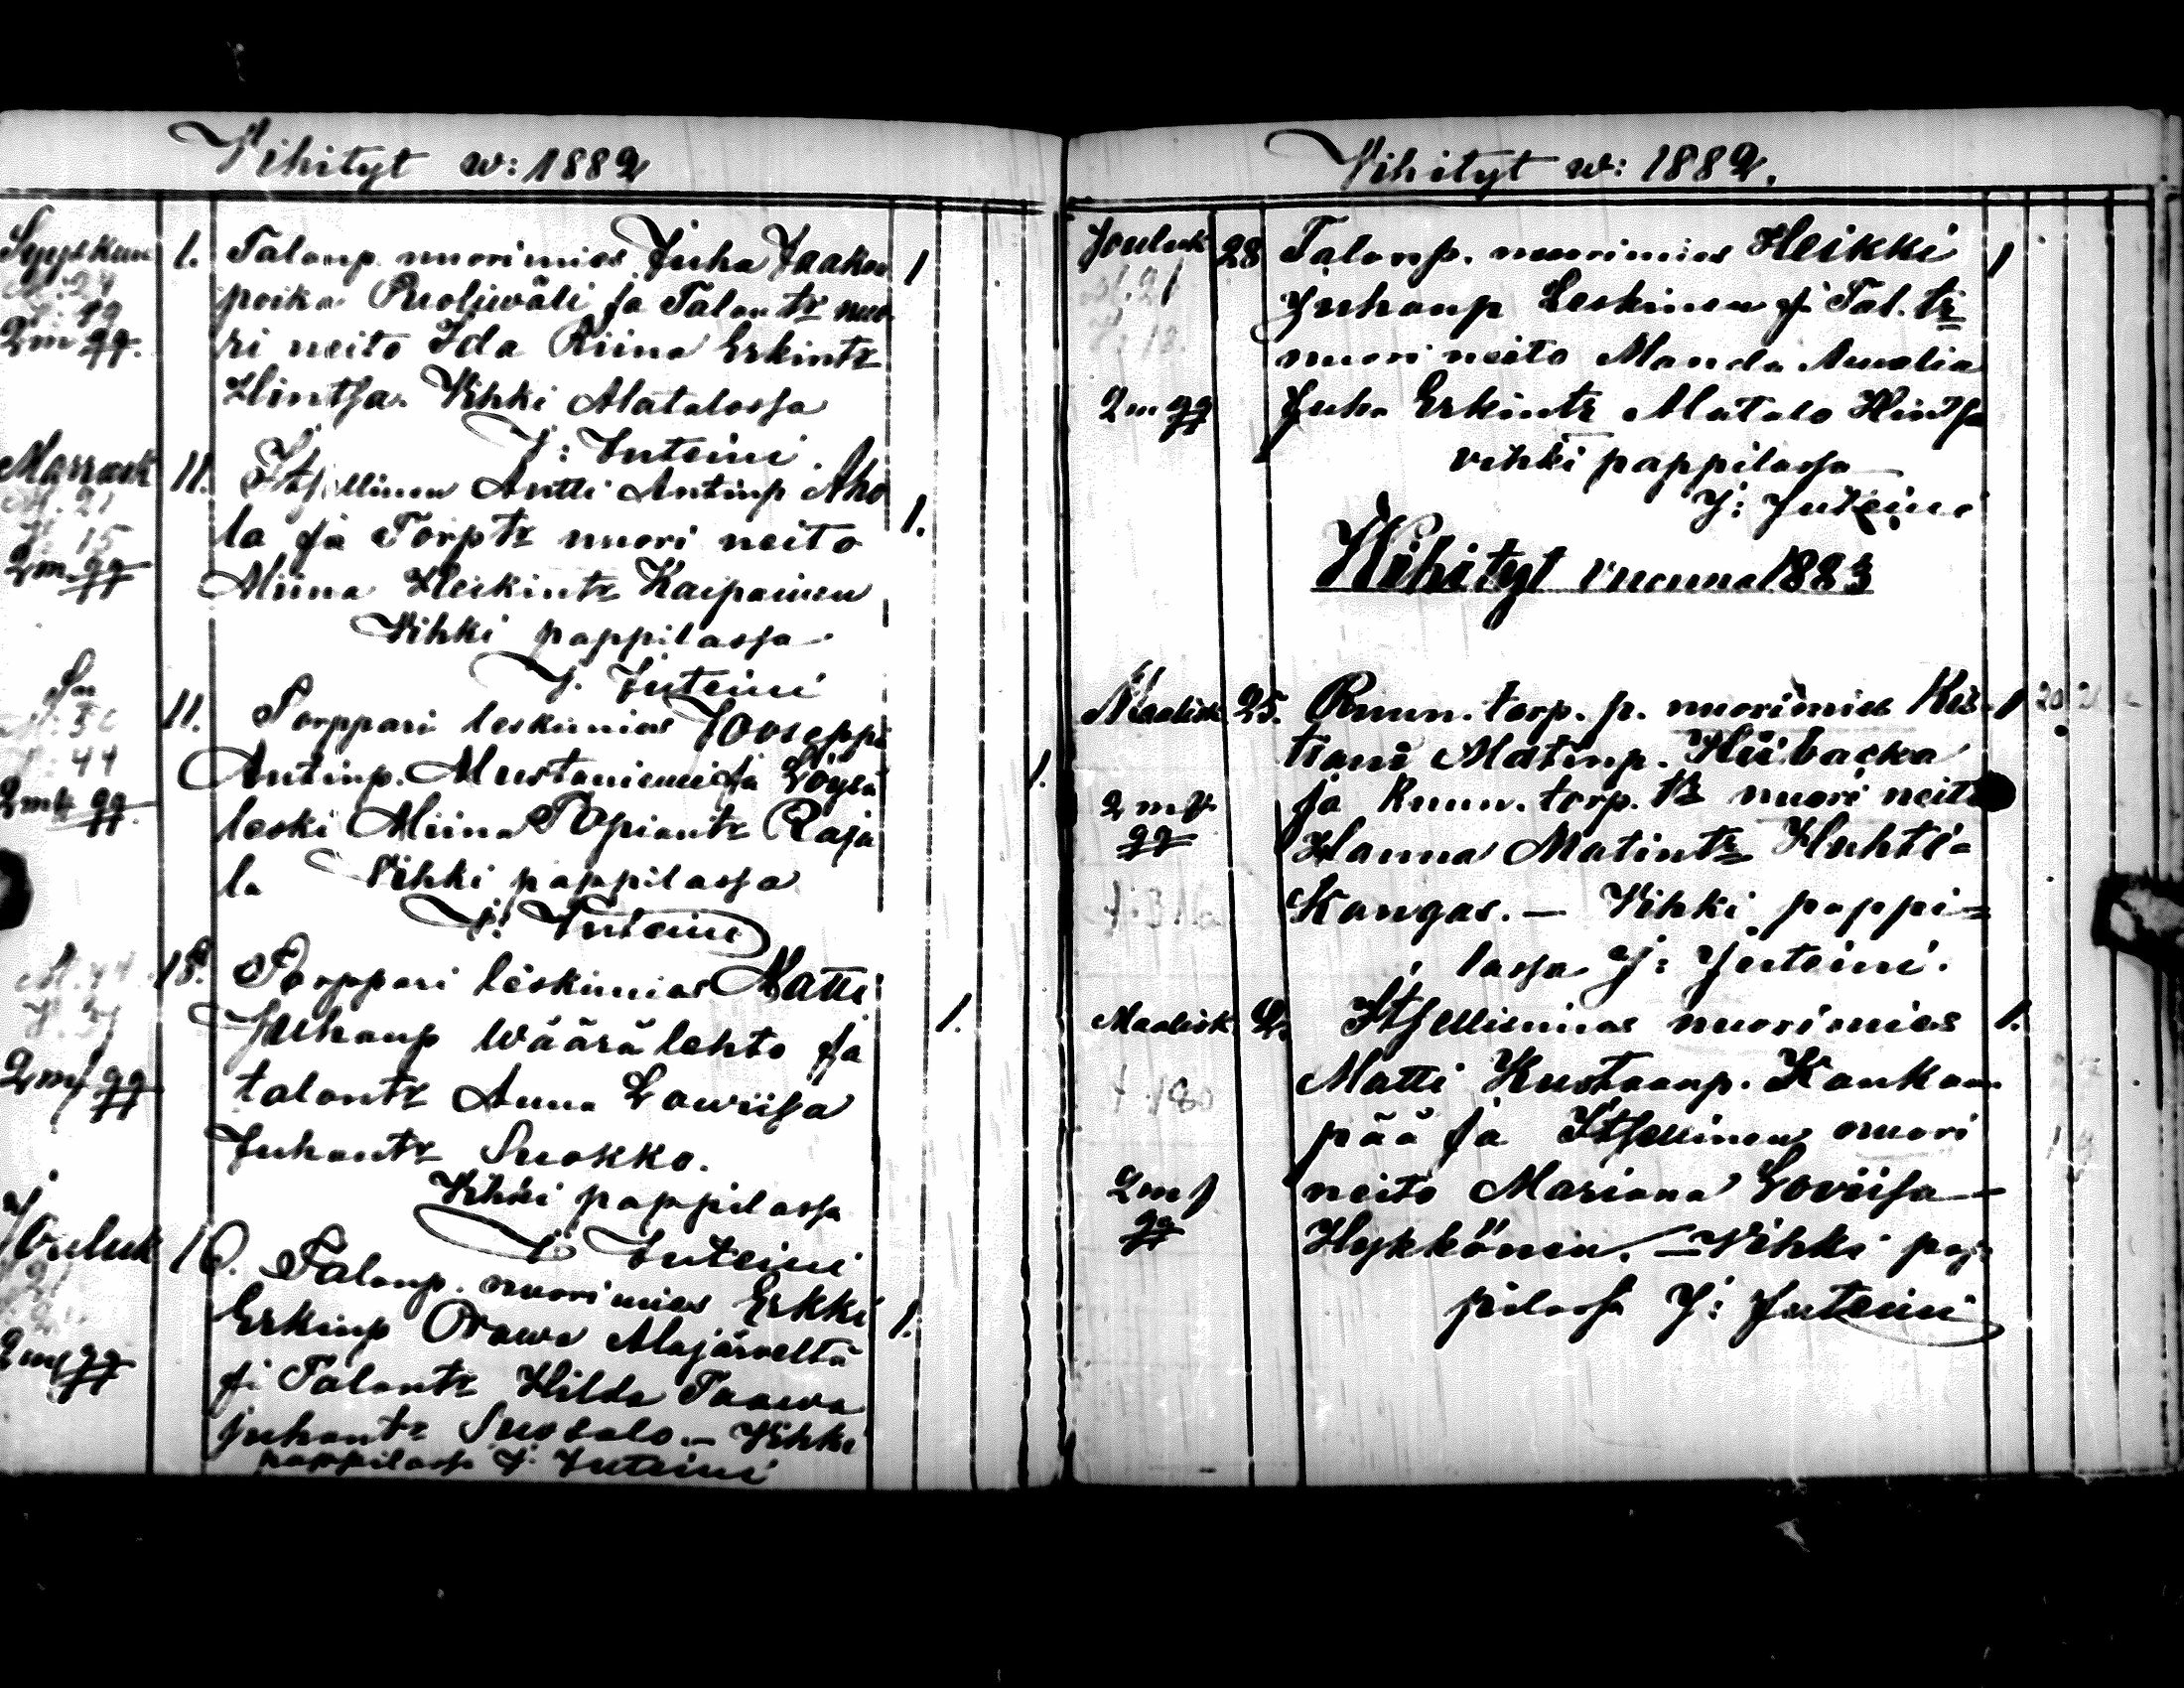 Vihityt w: 1882
Syyskuu 1. Talonp. nuorimies Juha Jaakon 1
poika Puoliwäli ja Talontr nuo
19
2 m gg. ri neito Ida Riina Erkintr
Hintsa. Vihki Alatalossa
J: Juteini.
Marrask 11. Itsellinen Antti Antinp Aho
M. 21
la ja Torptr nuori neito 1.
15
2 m. gg Miina Heikintr Kaipainen
Vihki pappilassa
J. Juteini
11. Torppari leskimies Jooseppi
44
Antinp. Mustaniemi ja Löysä 1.
2 mk gg. leski Miina Topiantr Raja
la Vihki pappilassa
J: Juteini
M. 44 18. Torppari leskimies Matti
Juhanp Wäärälehto ja 1.
2 mk gg talontr Anna Lowiisa
Juhontr Suokko.
Vihki pappilassa
J: Juteini
Jouluk 16. Talonp. nuorimies Erkki
Erkinp Orawa Alajärveltä 1.
2 mk gg ja Talontr Hilda Taawa
Juhontr Suosalo. – Vihki
pappilassa J: Juteini
Vihityt w: 1882.
Jouluk 28 Talonp. nuorimies Heikki 1
Juhanp Leskinen ja Tal. tr
nuori neito Manda Amalia
2 m gg Juha Erkintr Alatalo Hintsa
vihki pappilassa
J: Juteini
Vihityt vuonna 1883
Maalisk. 25. Ruun. torp. p. nuorimies Kris- 1 20
tiani Matinp. Hiibacka
2 mk ja Ruun. torp. tr nuori neito
gg Hanna Matintr Huhta-
Kangas. – Vihki pappi=
lassa J: Juteini.
Maalisk 2. Itsellismies nuorimies 1.
Matti Kustaanp. Kankaan
pää ja Itsellinen nuori
2 mk neito Mariana Loviisa
gg Hykkönen. – Vihki pap-
pilassa J: Juteini